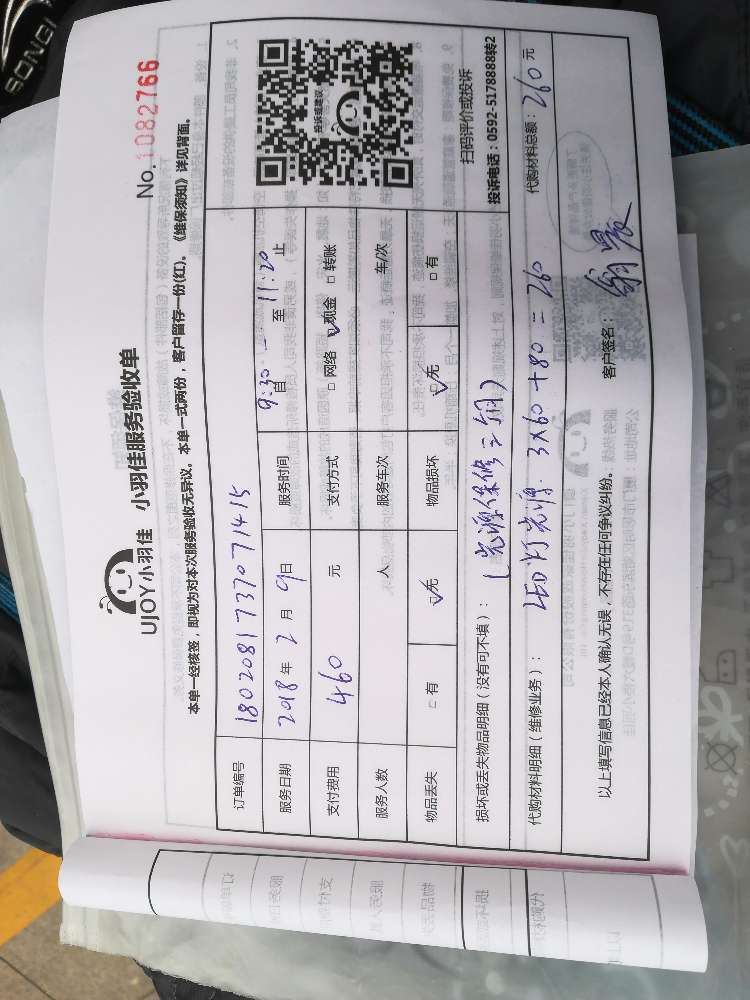 SONGI
No.1082766
UJOY小羽佳 小羽佳服务验收单
本单一经核签，即视为对本次服务验收无异议。本单一式两份，客户留存一份(红)。《维保须知》详见背面。
订单编号 1802081737071415
服务日期 2018 年 2 月 9 日 服务时间 9:30 自 — 至 11:20 止
支付费用 460 元 支付方式 □ 网络 ☑ 现金 □ 转账
服务人数 人 服务车次 车/次
物品丢失 □ 有 ☑ 无 物品损坏 ☑ 无 □ 有
投诉或建议
扫码评价或投诉
投诉电话：0592-5178888转2
损坏或丢失物品明细（没有可不填）：（光源保修三个月）
代购材料明细（维修业务）：LED灯光源 3×60+80=260 代购材料总额：260元
以上填写信息已经本人确认无误，不存在任何争议纠纷。 客户签名：